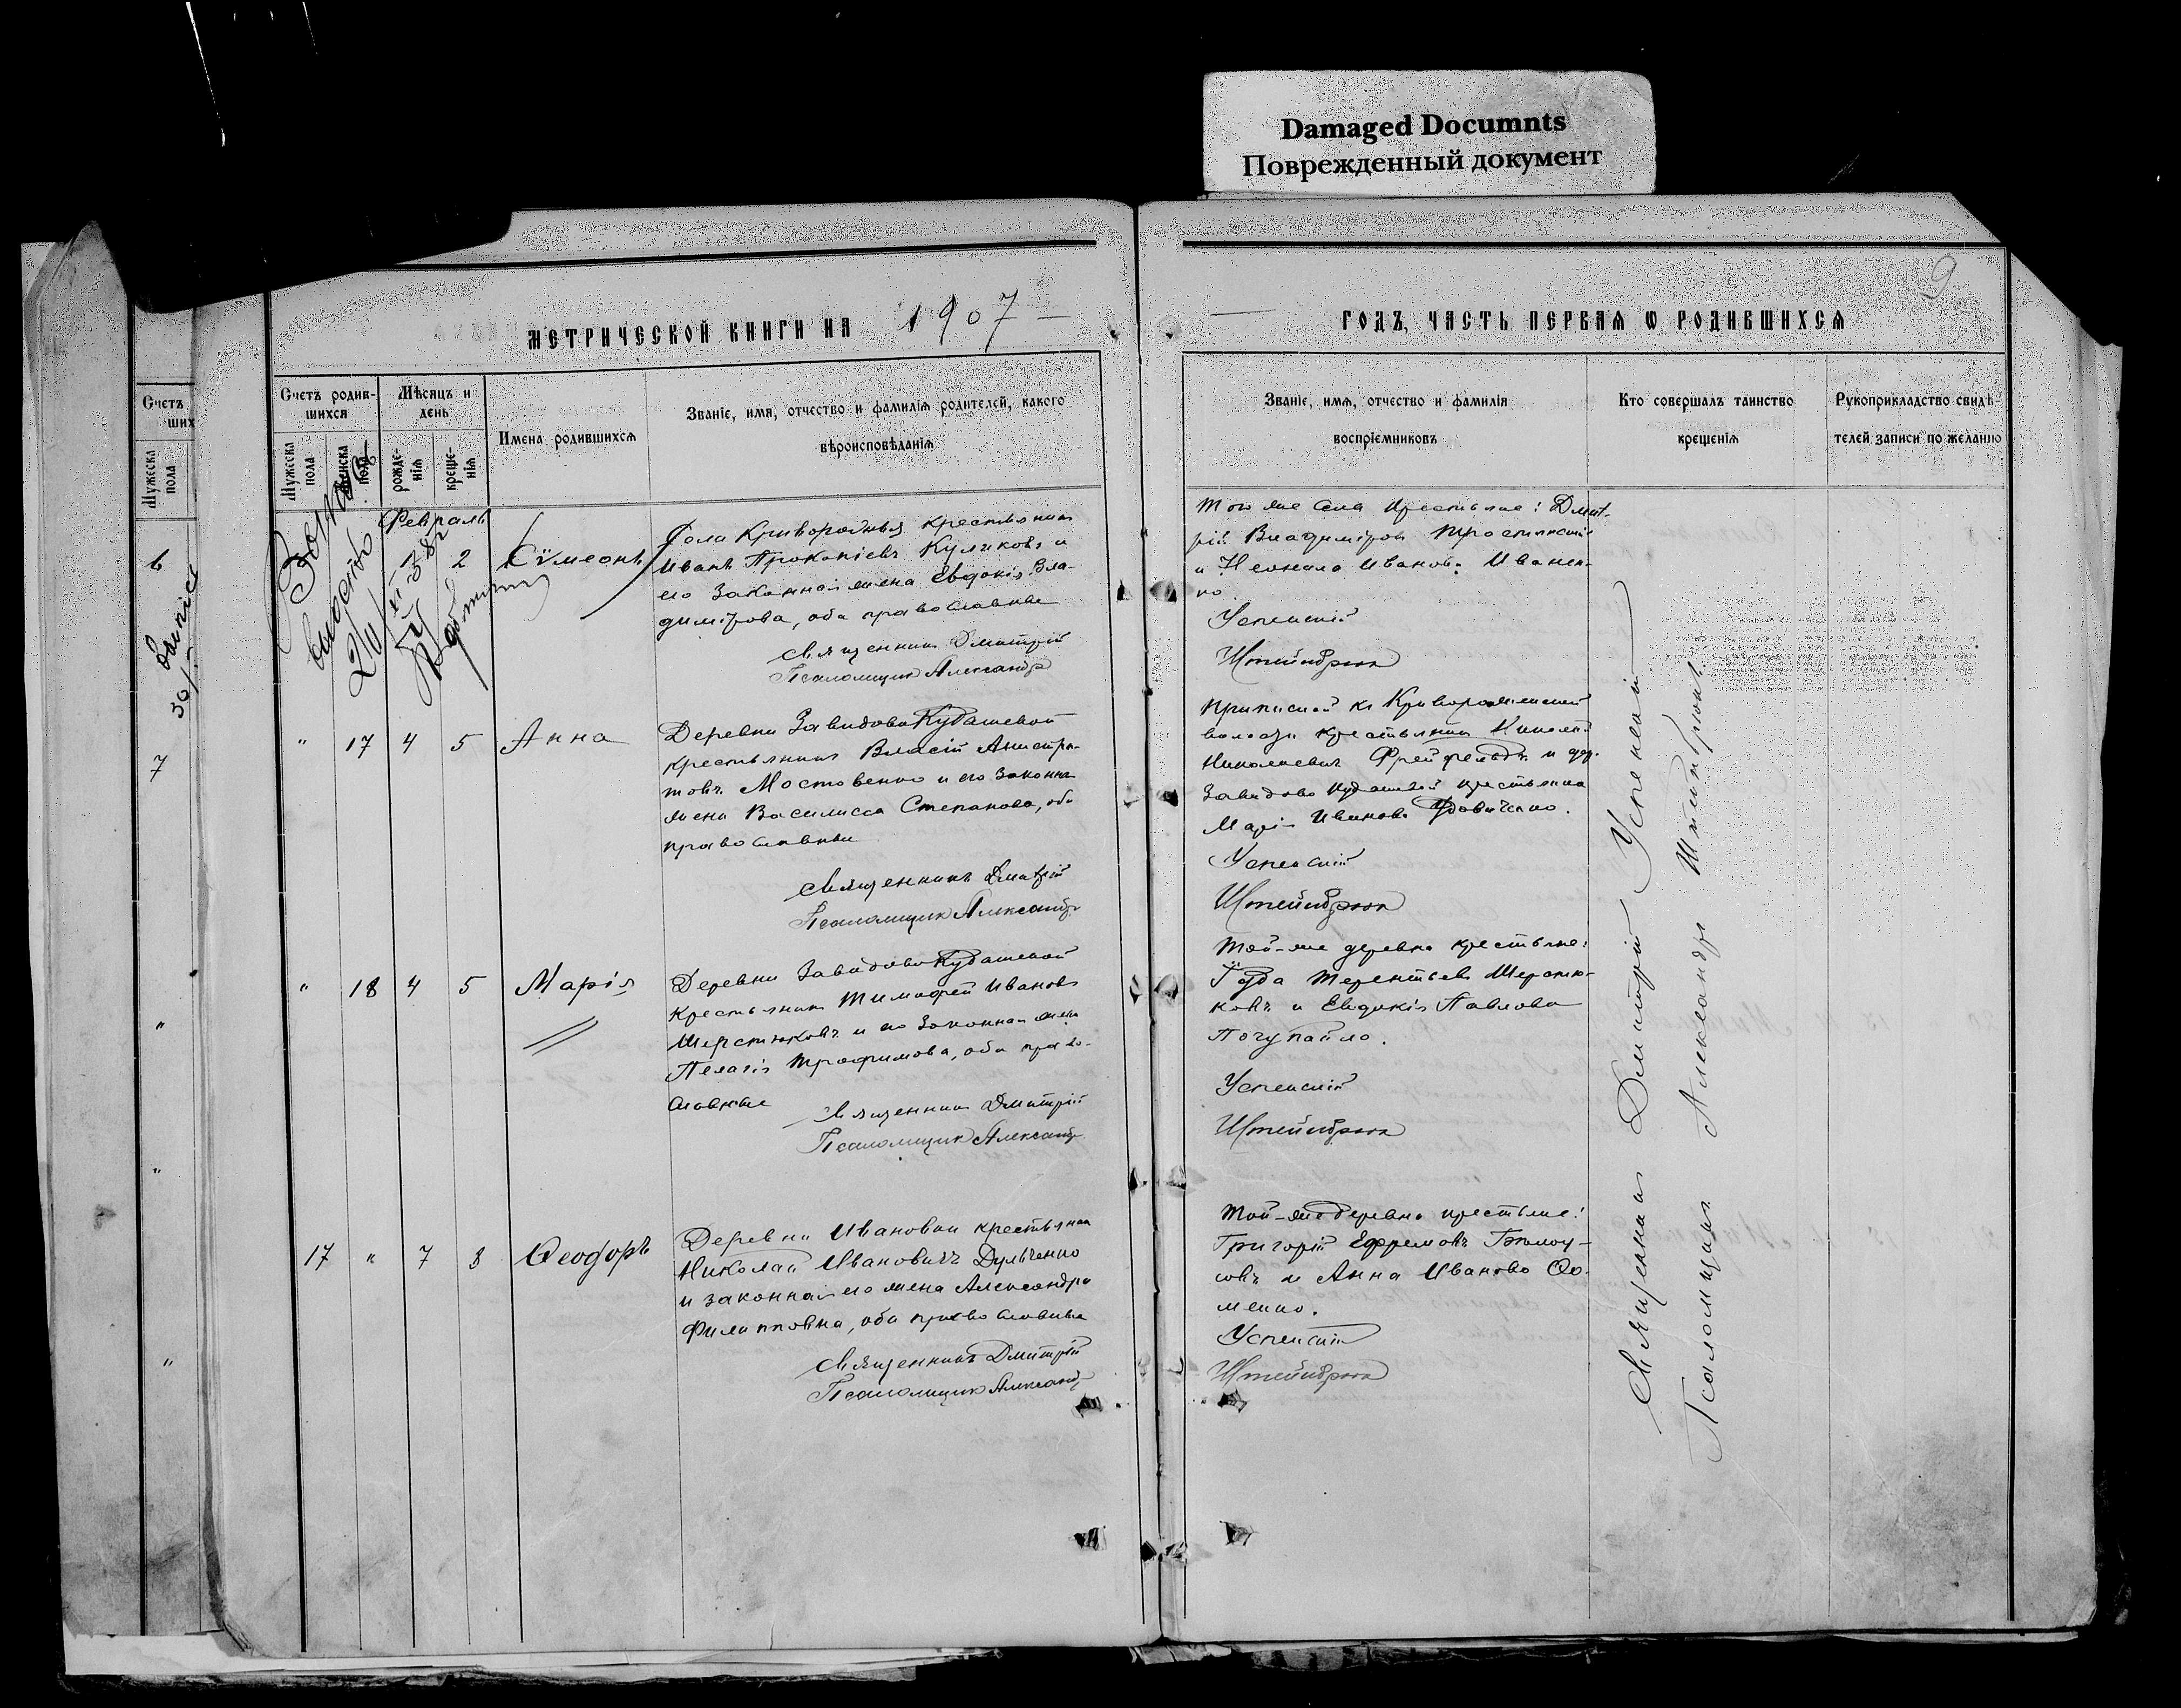 Damaged Documnts
Поврежденный документ
9
МЕТРИЧЕСКОЙ КНИГИ НА 1907
ГОДЪ, ЧАСТЬ ПЕРВАЯ Ѡ РОДИВШИХСЯ
Счетъ
ших
Мужеска пола
6
7
Счетъ родив-
шихся
Мужеска пола
Женска пола
Мѣсяцъ и
день
рожде-
нія
креще-
нія
Имена родившихся
Званіе, имя, отчество и фамилія родителей, какого
вѣроисповѣданія
Званіе, имя, отчество и фамилія
воспріемниковъ
Кто совершалъ таинство
крещенія
Рукоприкладство свидѣ-
телей записи по желанію
Февраль
1 2 Сѵмеонъ
Села Криворожья крестьянинъ
Иванъ Прокопіевъ Куликовъ и
его законная жена Евдокія Вла-
димірова, оба православные
Священникъ Дмитрій
Псаломщикъ Александръ
Того же села крестьяне: Дмит-
рій Владиміров
и Иванова Иванен-
ко.
Успенскій
Штейнбрюкъ
" 17 4 5 Анна
Деревни Завидово Кудашевой
крестьянинъ Власій
товъ Мостовенко и его законная
жена Василисса Степанова, оба
православные
Священникъ Дмитрій
Псаломщикъ Александръ
Приписной къ Криворожской
волости крестьянинъ
Николаевичъ и дер.
Завидово Кудашевой крестьянка
Марія Иванова Удовиченко.
Успенскій
Штейнбрюкъ
" 18 4 5 Марія
Деревни Завидово Кудашевой
крестьянинъ Тимофей Ивановъ
Шерстюковъ и его законная жена
Пелагія Трофимова, оба право-
славные
Священникъ Дмитрій
Псаломщикъ Александръ
Той-же деревни крестьяне:
Терентьевъ Шерстю-
ковъ и Евдокія Павлова
Почупайло.
Успенскій
Штейнбрюкъ
17 " 7 8 Ѳеодоръ
Деревни Ивановки крестьянинъ
Николай Ивановичъ Дульченко
и законная его жена Александра
Филипповна, оба православные
Священникъ Дмитрій
Псаломщикъ Александръ
Той-же деревни крестьяне:
Григорій Ефремовъ Бѣлоу-
совъ и Анна Иванова Ѳо-
менко.
Успенскій
Штейнбрюкъ
Священникъ Дмитрій Успенскій
Псаломщикъ Александръ Штейнбрюкъ